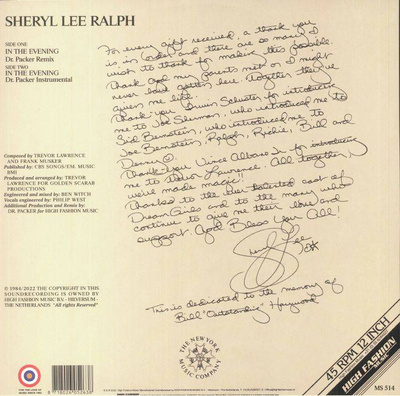 SHERYL LEE RALPH
SIDE ONE
IN THE EVENING
Dr. Packer Remix
SIDE TWO
IN THE EVENING
Dr. Packer Instrumental
For every gift received, a thank you
is in order and there are so many I
wish to thank for making this possible.
Thank God my parents met or I might
never have gotten here. Together they've
given me life.
Thank-you Gwen Schuster for introducing
me to Joe Sherman, who introduced me to
Sid Bernstein, who introduced me to
Joe Bernstein, Ralph, Richie, Bill and
Denny
Thank-You Vince for introducing
me to Trevor Lawrence. All together
we've made magic!!
Thanks to the talented cast of
Dream Girls and to the many who
continue to give me their love and
support. God Bless You All!
This is dedicated to the memory of
Bill "Outstanding" Haywood
Composed by TREVOR LAWRENCE
and FRANK MUSKER
Published by: CBS SONGS/EM. MUSIC
BMI
Produced and arranged by: TREVOR
LAWRENCE FOR GOLDEN SCARAB
PRODUCTIONS
Engineered and mixed by: BEN WITCH
Vocals engineered by: PHILIP WEST
Additional Production and Remix by:
DR. PACKER for HIGH FASHION MUSIC
© 1984/2022 THE COPYRIGHT IN THIS
SOUNDRECORDING IS OWNED BY
HIGH FASHION MUSIC BV - HILVERSUM -
THE NETHERLANDS "All rights Reserved"
THE NEW YORK
MUSIC COMPANY
45 RPM 12 INCH
HIGH FASHION
MS 514